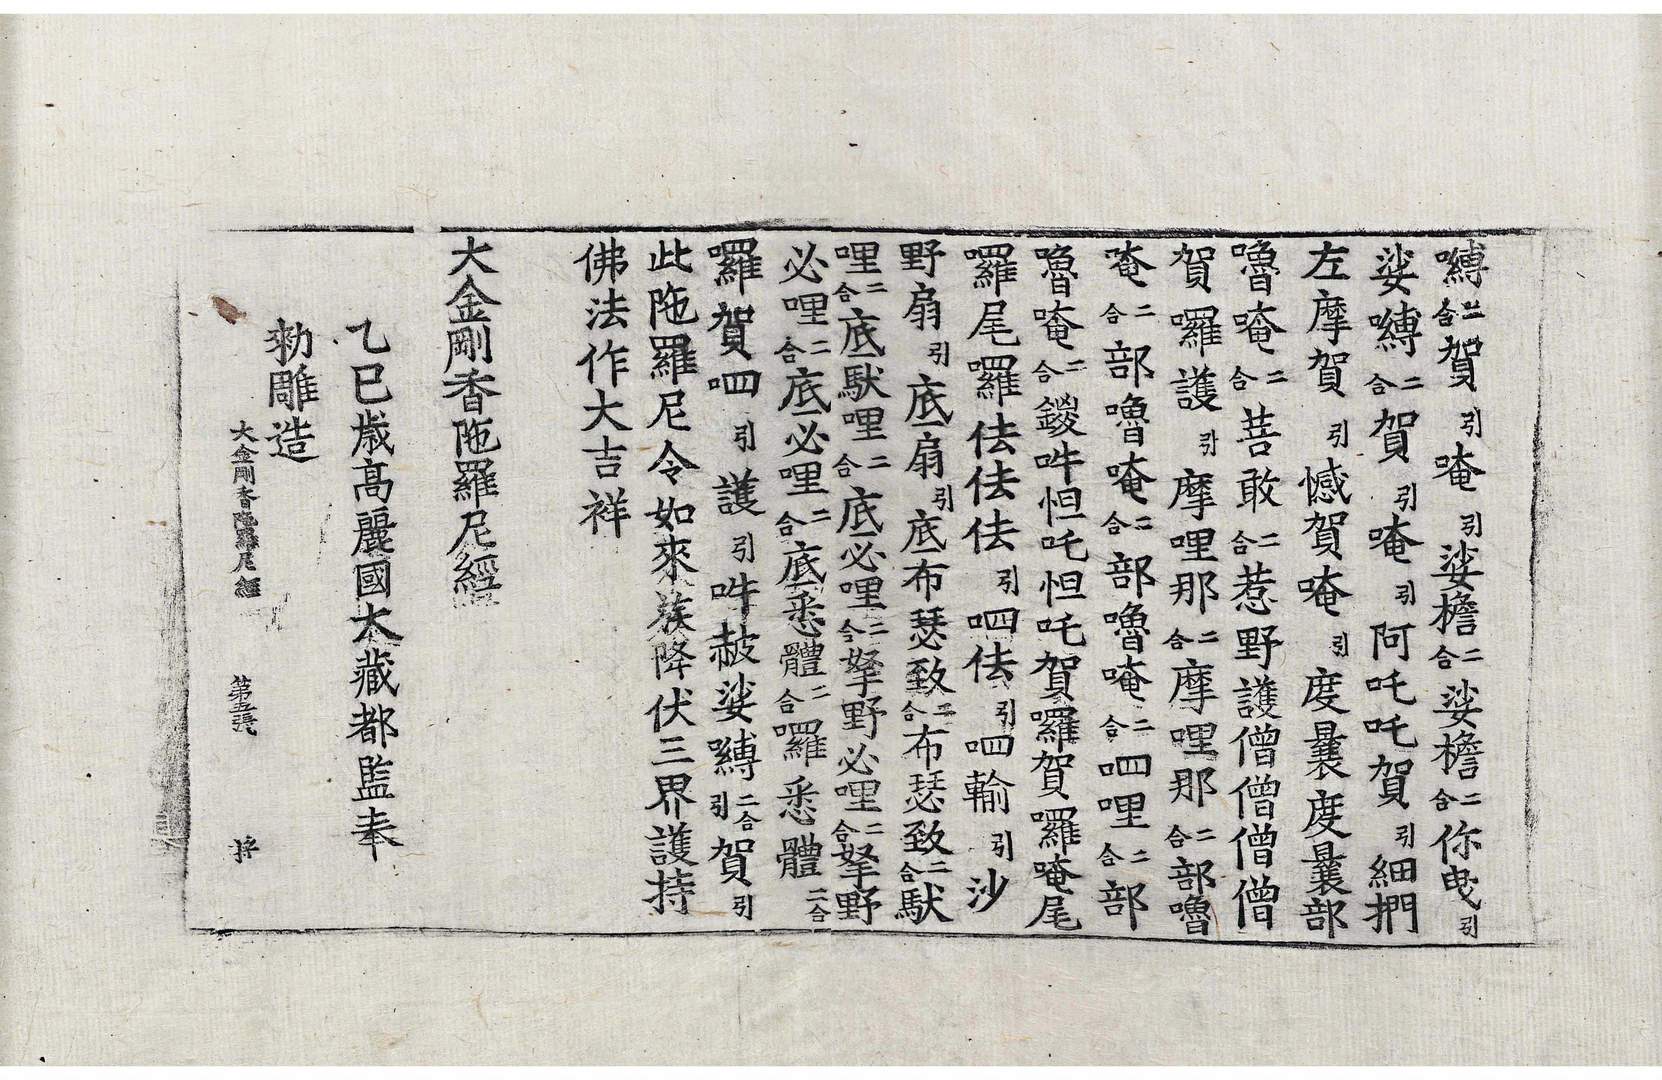 嚩二合賀引唵引娑檐二合娑檐二合你曳引
娑嚩二合賀引唵引阿吒吒賀引細捫
左摩賀引憾賀唵引度曩度曩部
嚕唵二合菩敢二合惹野護僧僧僧僧
賀囉護引摩哩那二合摩哩那二合部嚕
唵二合部嚕唵二合部嚕唵二合呬哩二合部
嚕唵二合鍐吽怛吒怛吒賀囉賀囉唵尾
囉尾囉佉佉佉引呬佉引呬輸引沙
野扇引底扇引底布瑟致二合布瑟致二合馱
哩二合底馱哩二合底必哩二合拏野必哩二合拏野
必哩二合底必哩二合底悉體二合囉悉體二合
囉賀呬引護引吽赦娑嚩二合引賀引
此陁羅尼令如來族降伏三界護持
佛法作大吉祥
大金剛香陁羅尼經
乙巳歲高麗國大藏都監奉
勅雕造
大金剛香陁羅尼經 第五張